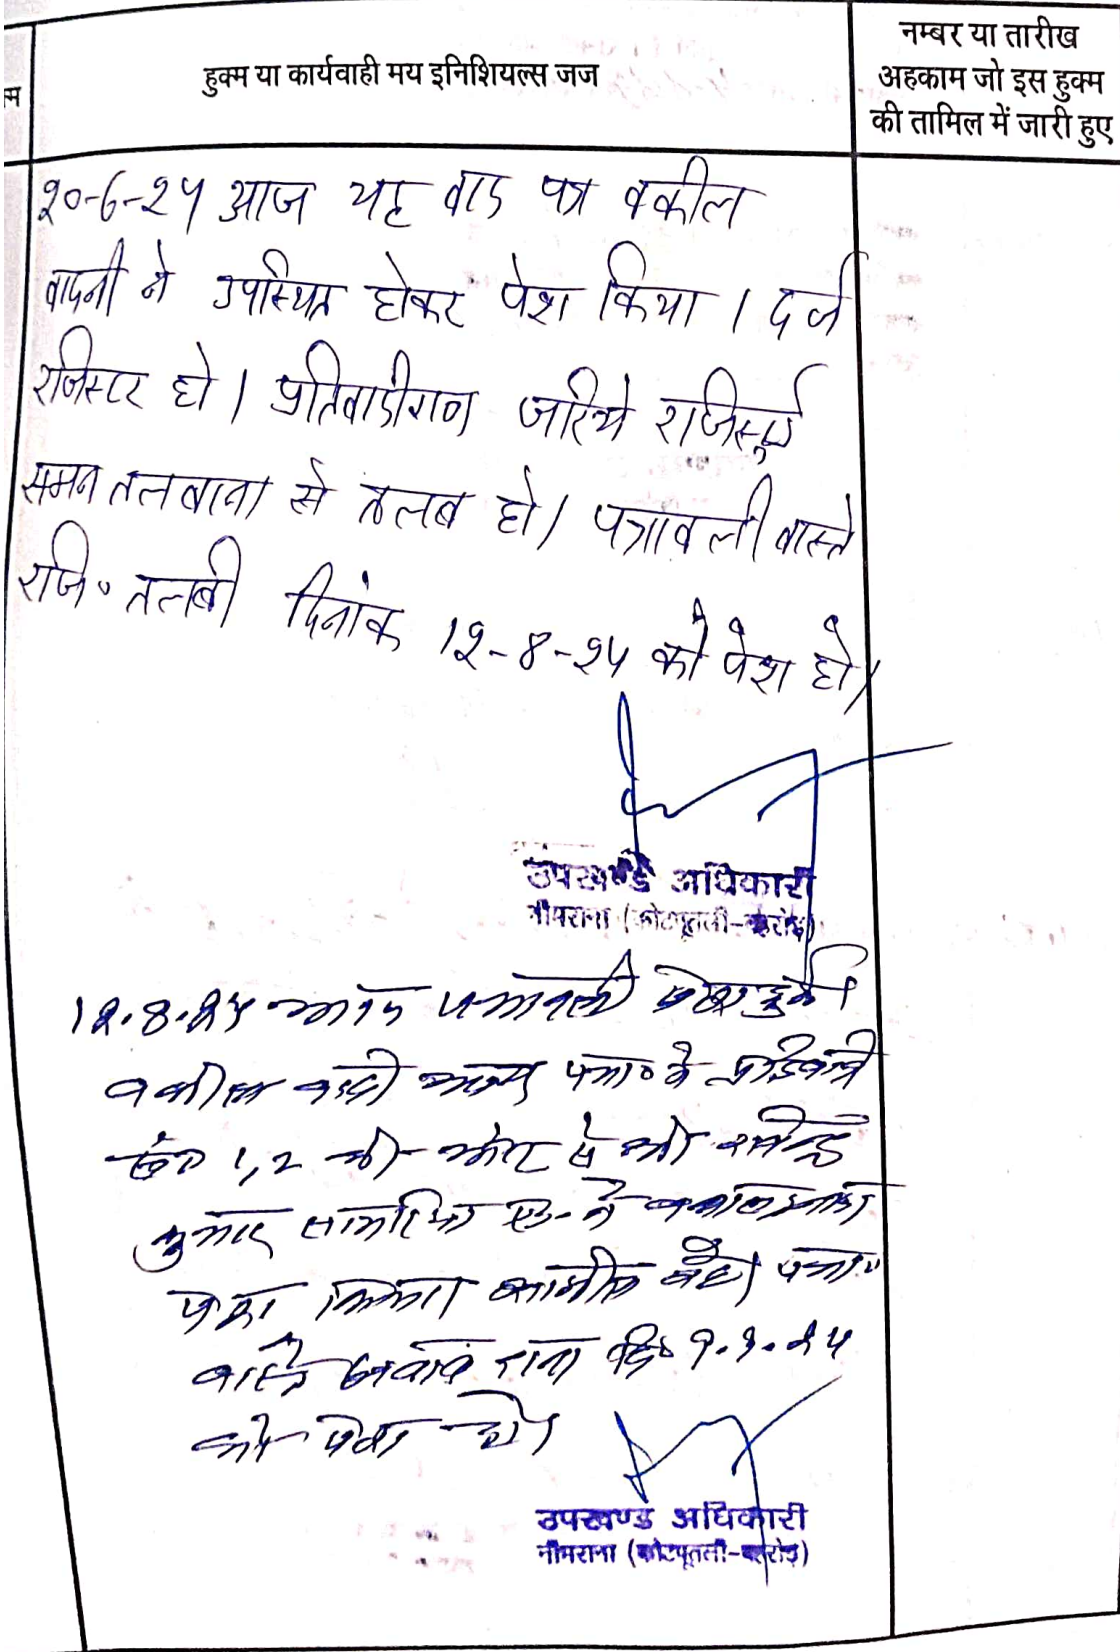 म
हुक्म या कार्यवाही मय इनिशियल्स जज
नम्बर या तारीख
अहकाम जो इस हुक्म
की तामिल में जारी हुए
20-6-25 आज यह वाद पत्र वकील
वादनी ने उपस्थित होकर पेश किया । दर्ज
रजिस्टर हो । प्रतिवादीगण जरिये रजिस्टर्ड
समन तलबाना से तलब हो । पत्रावली वास्ते
रजि॰ तलबी दिनांक 12-8-25 को पेश हो ।
उपखण्ड अधिकारी
नीमराना (कोटपूतली-बहरोड़)
12.8.25 आज पत्रावली पेश हुई ।
वकील वादी
1,2 की ओर से श्री
कुमार ने वकालतनामा
पेश किया । पत्रा॰
वास्ते जवाब दावा दि॰ 9.9.25
को पेश हो ।
उपखण्ड अधिकारी
नीमराना (कोटपूतली-बहरोड़)